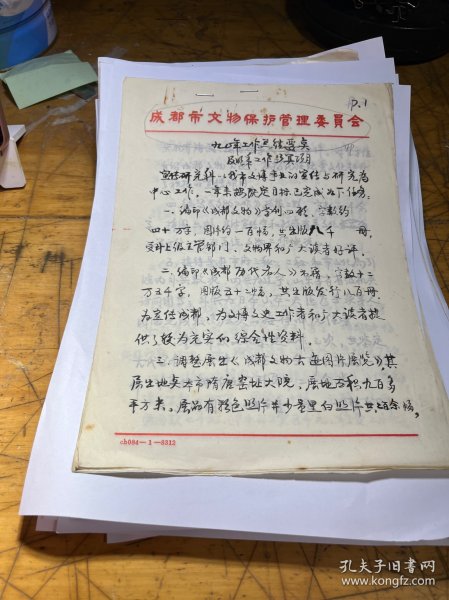 P.1
成都市文物保护管理委員会
九〇年工作总结要点
及明年工作
宣传研究科以我市文博事业的宣传与研究为
中心工作，一年来按既定目标已完成如下任务：
一、编印《成都文物》季刊四期，字数约
四十万字，图片约一百幅，共出版八千 册，
受到上级主管部门、文物界和广大读者好评。
二、编印《成都历代名人》不辍，字数十二
万五千字，图版五十二幅，共出版发行八百册，
为宣传成都，为文博文史工作者和广大读者提
供了较为充实的综合性资料。
三、调整展出《成都文物古迹图片展览》其
展出地点为市隋唐窑址大院，展地面积九百多
平方米。展品有彩色照片并少量黑白照片共 余幅。
ch084—1—3312
孔夫子旧书网
www.kongfz.com